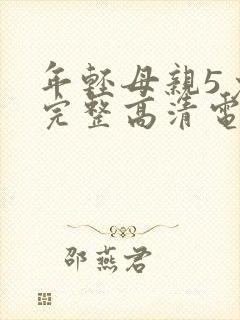 年輕母親5
完整高清電
邵燕君